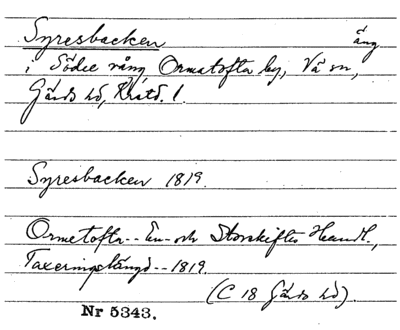 Syresbacken äng
i Södre vång, Ormatofta by, Vä sn,
Gärds hd, Kristd. l.
Syresbacken 1819.
Ormetofta -- En- och Storskiftes Handl.,
Taxeringslängd -- 1819.
(C 18 Gärds hd).
Nr 5343.